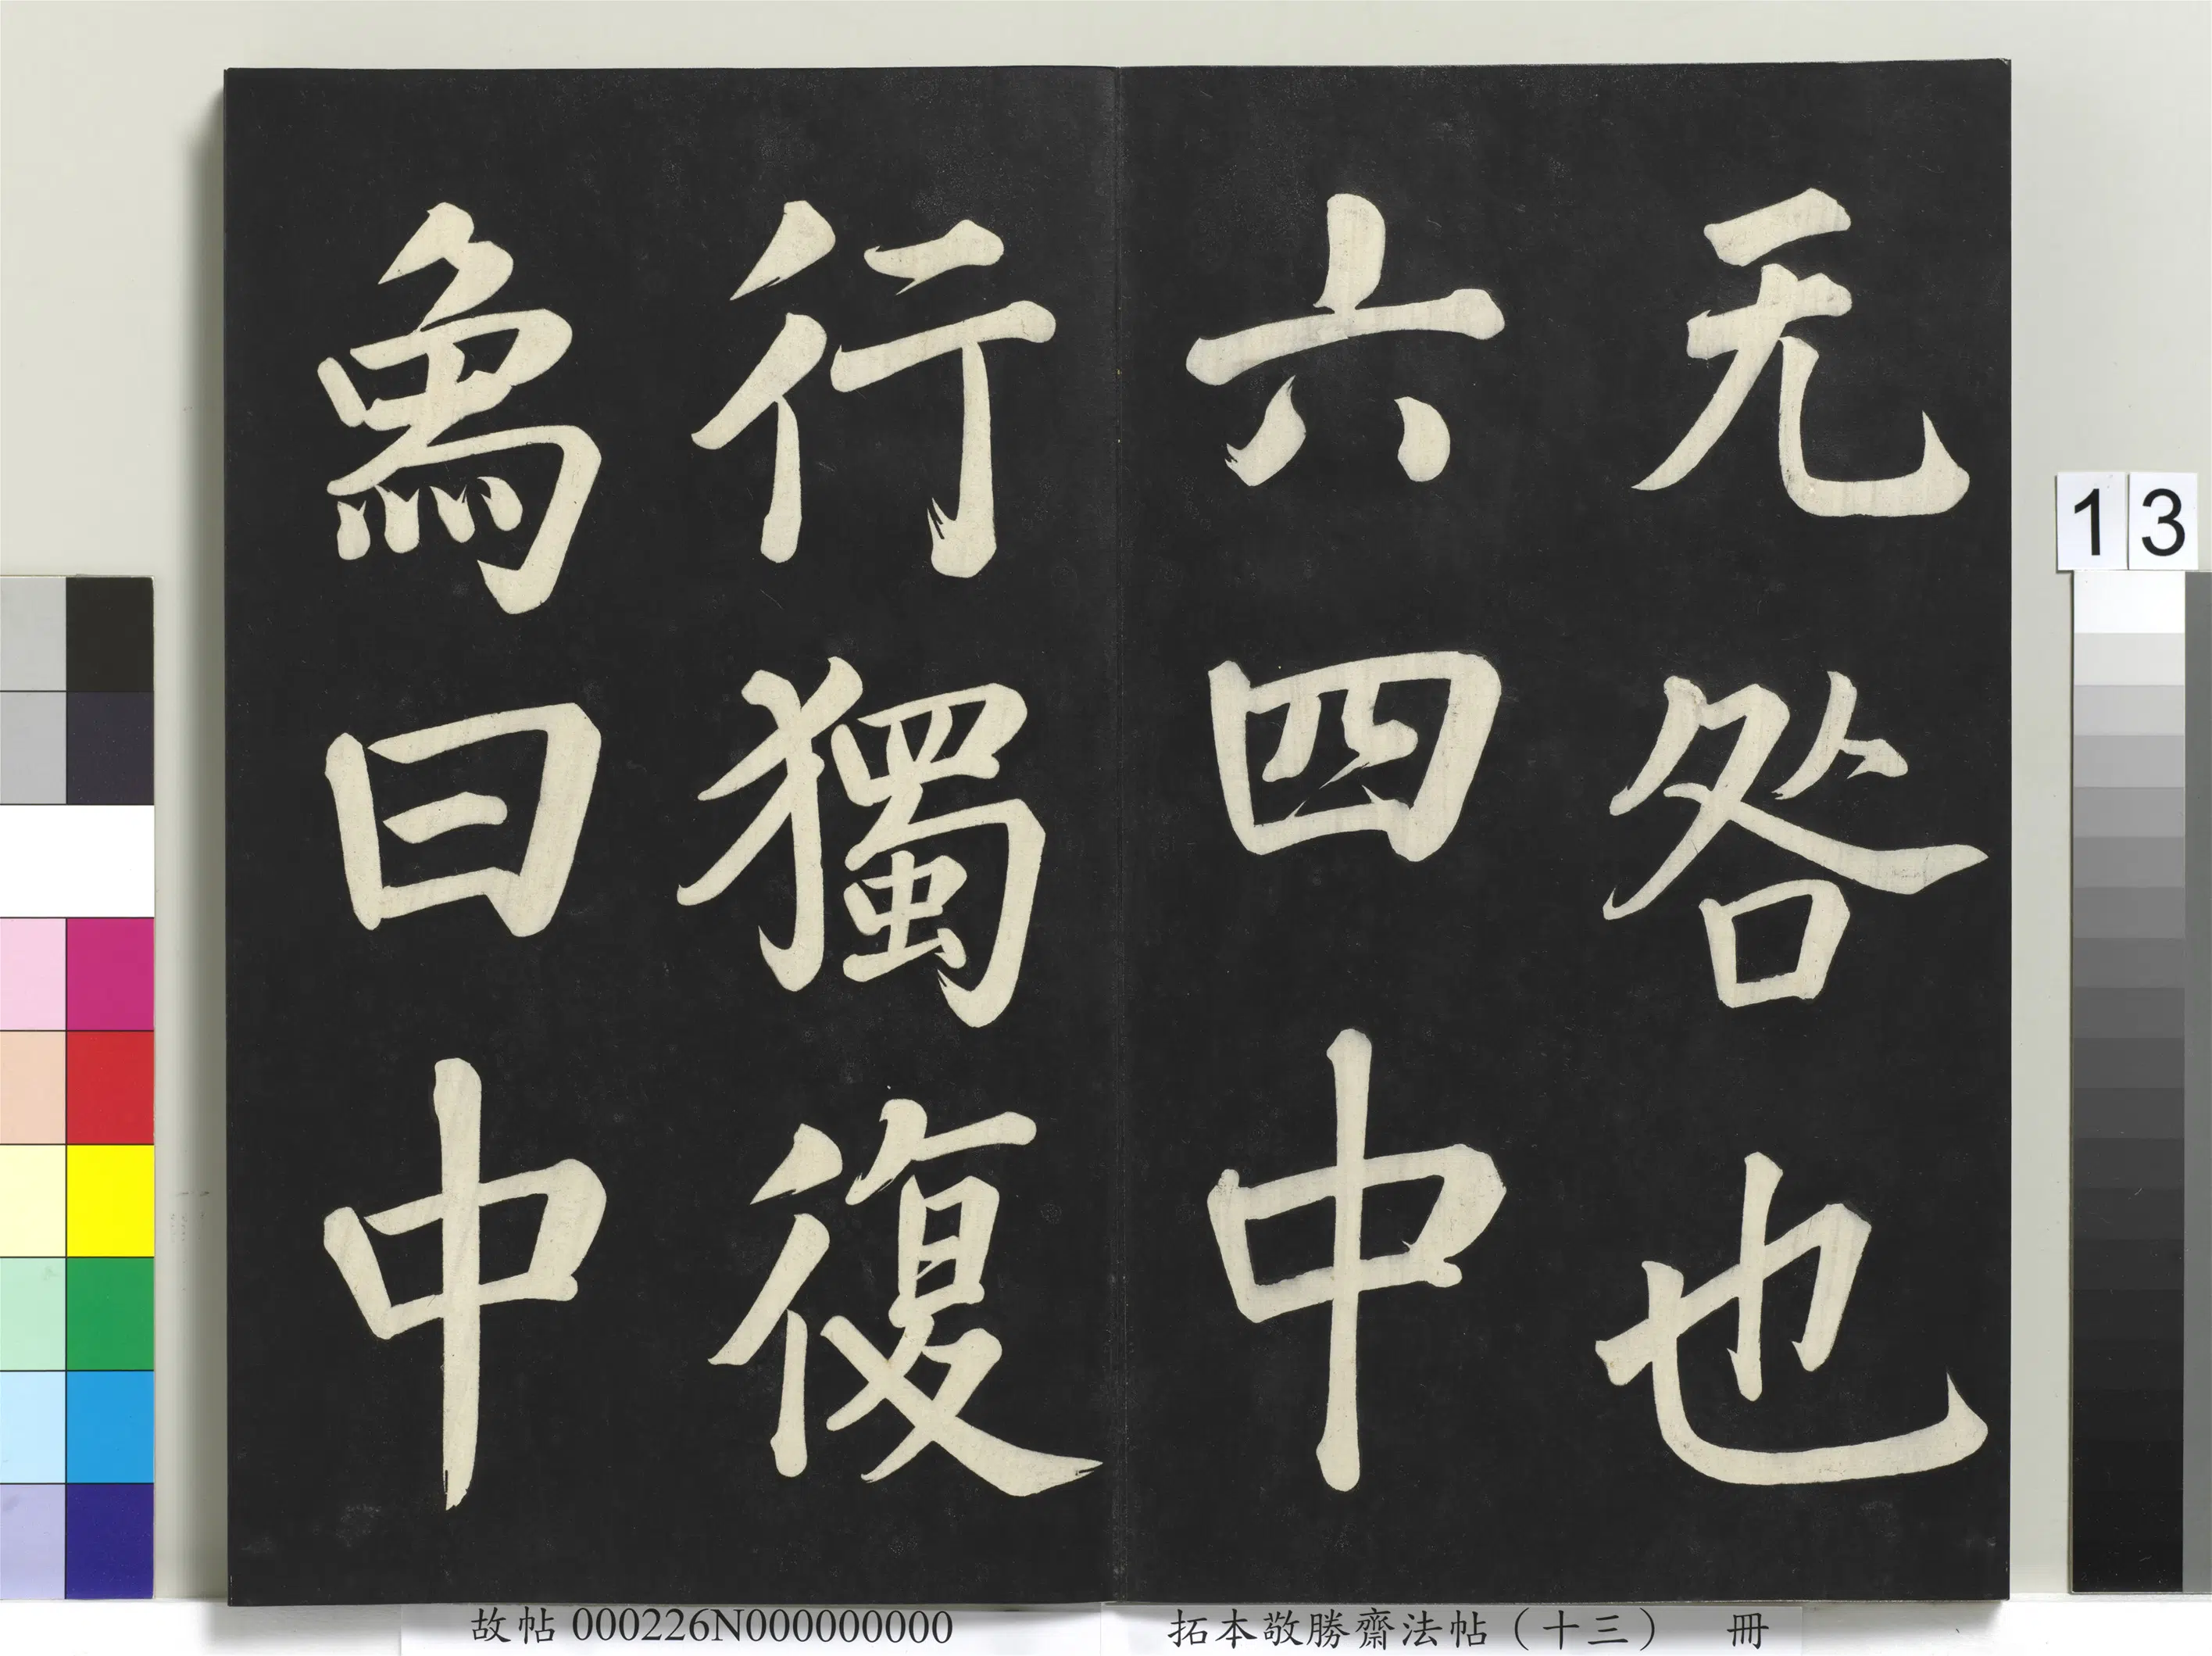 无咎也
六四中
行獨復
象曰中
13
故帖 000226N000000000
拓本敬勝齋法帖（十三） 冊